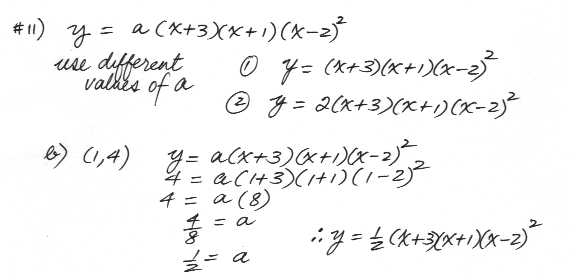 #11) y = a(x+3)(x+1)(x-2)²
use different values of a
① y = (x+3)(x+1)(x-2)²
② y = 2(x+3)(x+1)(x-2)²
b) (1,4) y = a(x+3)(x+1)(x-2)²
4 = a(1+3)(1+1)(1-2)²
4 = a(8)
4/8 = a
1/2 = a ∴ y = 1/2 (x+3)(x+1)(x-2)²